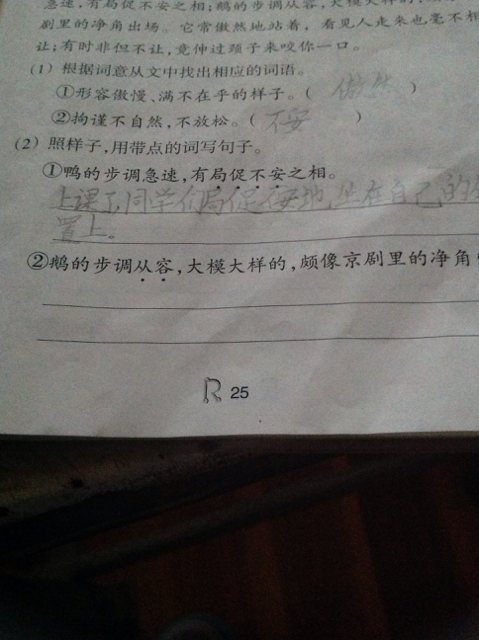 急速,有局促不安之相;鹅的步调从容,大模大样的,
剧里的净角出场。它常傲然地站着,看见人走来也毫不相
让;有时非但不让,竟伸过颈子来咬你一口。
(1)根据词意从文中找出相应的词语。
①形容傲慢、满不在乎的样子。( 傲然 )
②拘谨不自然,不放松。( 不安 )
(2)照样子,用带点的词写句子。
①鸭的步调急速,有局促不安之相。
上课了,同学们局促不安地,坐在自己的
置上。
②鹅的步调从容,大模大样的,颇像京剧里的净角
R 25